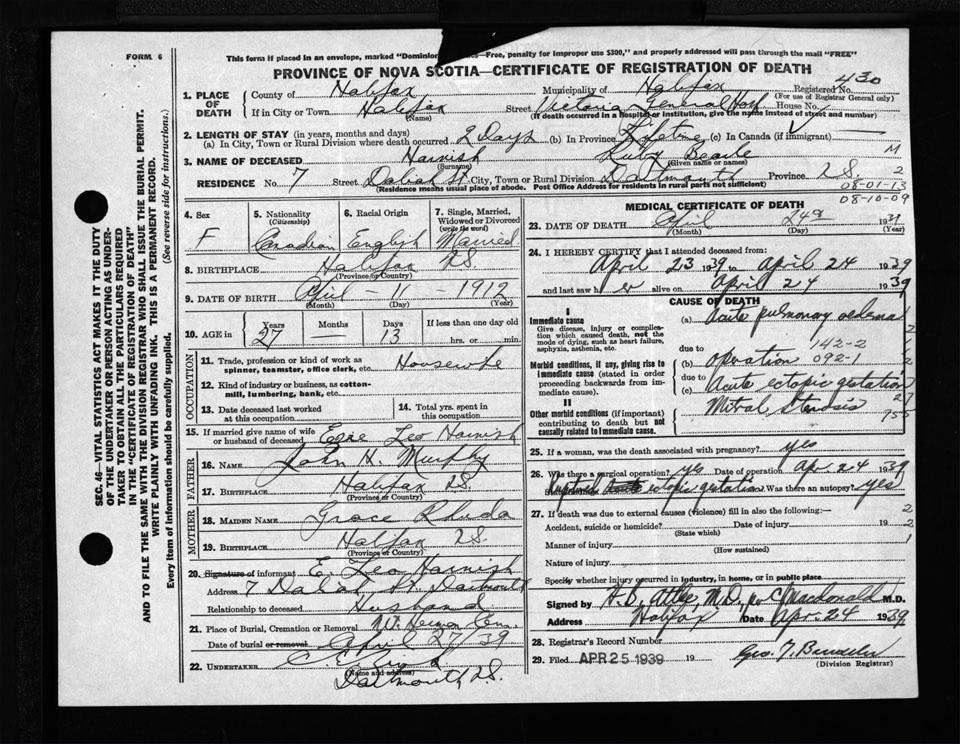 FORM 6
This form if placed in an envelope, marked "Dominion Free, penalty for improper use $300," and properly addressed will pass through the mail "FREE"
PROVINCE OF NOVA SCOTIA—CERTIFICATE OF REGISTRATION OF DEATH
430
1. PLACE OF DEATH
County of Halifax Municipality of Halifax Registered No.
(For use of Registrar General only)
If in City or Town Halifax Street Victoria General Hosp House No.
(Name) (If death occurred in a hospital or institution, give the name instead of street and number)
2. LENGTH OF STAY (in years, months and days)
(a) In City, Town or Rural Division where death occurred 2 Days (b) In Province Lifetime (c) In Canada (if immigrant)
3. NAME OF DECEASED Harnish Ruby
(Surname) (Given name or names)
M
2
RESIDENCE No. 7 Street Dahlia St. City, Town or Rural Division Dartmouth Province N.S.
(Residence means usual place of abode. Post Office Address for residents in rural parts not sufficient)
08-01-13
08-10-09
4. Sex F
5. Nationality (Citizenship) Canadian
6. Racial Origin English
7. Single, Married, Widowed or Divorced (write the word) Married
8. BIRTHPLACE Halifax N.S.
(Province or Country)
9. DATE OF BIRTH April - 11 - 1912
(Month) (Day) (Year)
10. AGE in Years 27 Months — Days 13 If less than one day old hrs. or min.
OCCUPATION
11. Trade, profession or kind of work as spinner, teamster, office clerk, etc. Housewife
12. Kind of industry or business, as cotton-mill, lumbering, bank, etc.
13. Date deceased last worked at this occupation
14. Total yrs. spent in this occupation
15. If married give name of wife or husband of deceased Leo Harnish
FATHER
16. NAME John H. Murphy
17. BIRTHPLACE Halifax N.S.
(Province or Country)
MOTHER
18. MAIDEN NAME Grace
19. BIRTHPLACE Halifax N.S.
(Province or Country)
20. Signature of informant E. Leo Harnish
Address 7 Dahlia St. Dartmouth
Relationship to deceased Husband
21. Place of Burial, Cremation or Removal Mt. Hermon Cem.
Date of burial or removal April 27/39
22. UNDERTAKER
(Name and address)
Dartmouth, N.S.
MEDICAL CERTIFICATE OF DEATH
23. DATE OF DEATH April 24th 19
(Month) (Day) (Year)
24. I HEREBY CERTIFY that I attended deceased from:
April 23 1939 to April 24 1939
and last saw her alive on April 24 1939
CAUSE OF DEATH
I
Immediate cause
Give disease, injury or complication which caused death, not the mode of dying, such as heart failure, asphyxia, asthenia, etc.
(a) Acute pulmonary oedema
due to 142-2
Morbid conditions, if any, giving rise to immediate cause (stated in order proceeding backwards from immediate cause).
(b) Operation 092-1
due to
(c) Acute ectopic gestation
II
Other morbid conditions (if important) contributing to death but not causally related to immediate cause.
Mitral stenosis
25. If a woman, was the death associated with pregnancy? yes
26. Was there a surgical operation? yes Date of operation Apr. 24 1939
Ruptured Acute ectopic gestation Was there an autopsy? yes
27. If death was due to external causes (violence) fill in also the following:—
Accident, suicide or homicide? Date of injury 19
(State which)
Manner of injury
(How sustained)
Nature of injury
Specify whether injury occurred in industry, in home, or in public place
Signed by H.B. Atlee, M.D. per C Macdonald M.D.
Address Halifax Date Apr. 24 1939
28. Registrar's Record Number
29. Filed APR 25 1939 19 Geo. T.
(Division Registrar)
SEC. 46—VITAL STATISTICS ACT MAKES IT THE DUTY
OF THE UNDERTAKER OR PERSON ACTING AS UNDER-
TAKER TO OBTAIN ALL THE PARTICULARS REQUIRED
IN THE "CERTIFICATE OF REGISTRATION OF DEATH"
AND TO FILE THE SAME WITH THE DIVISION REGISTRAR WHO SHALL ISSUE THE BURIAL PERMIT.
WRITE PLAINLY WITH UNFADING INK. THIS IS A PERMANENT RECORD.
Every item of information should be carefully supplied. (See reverse side for instructions.)